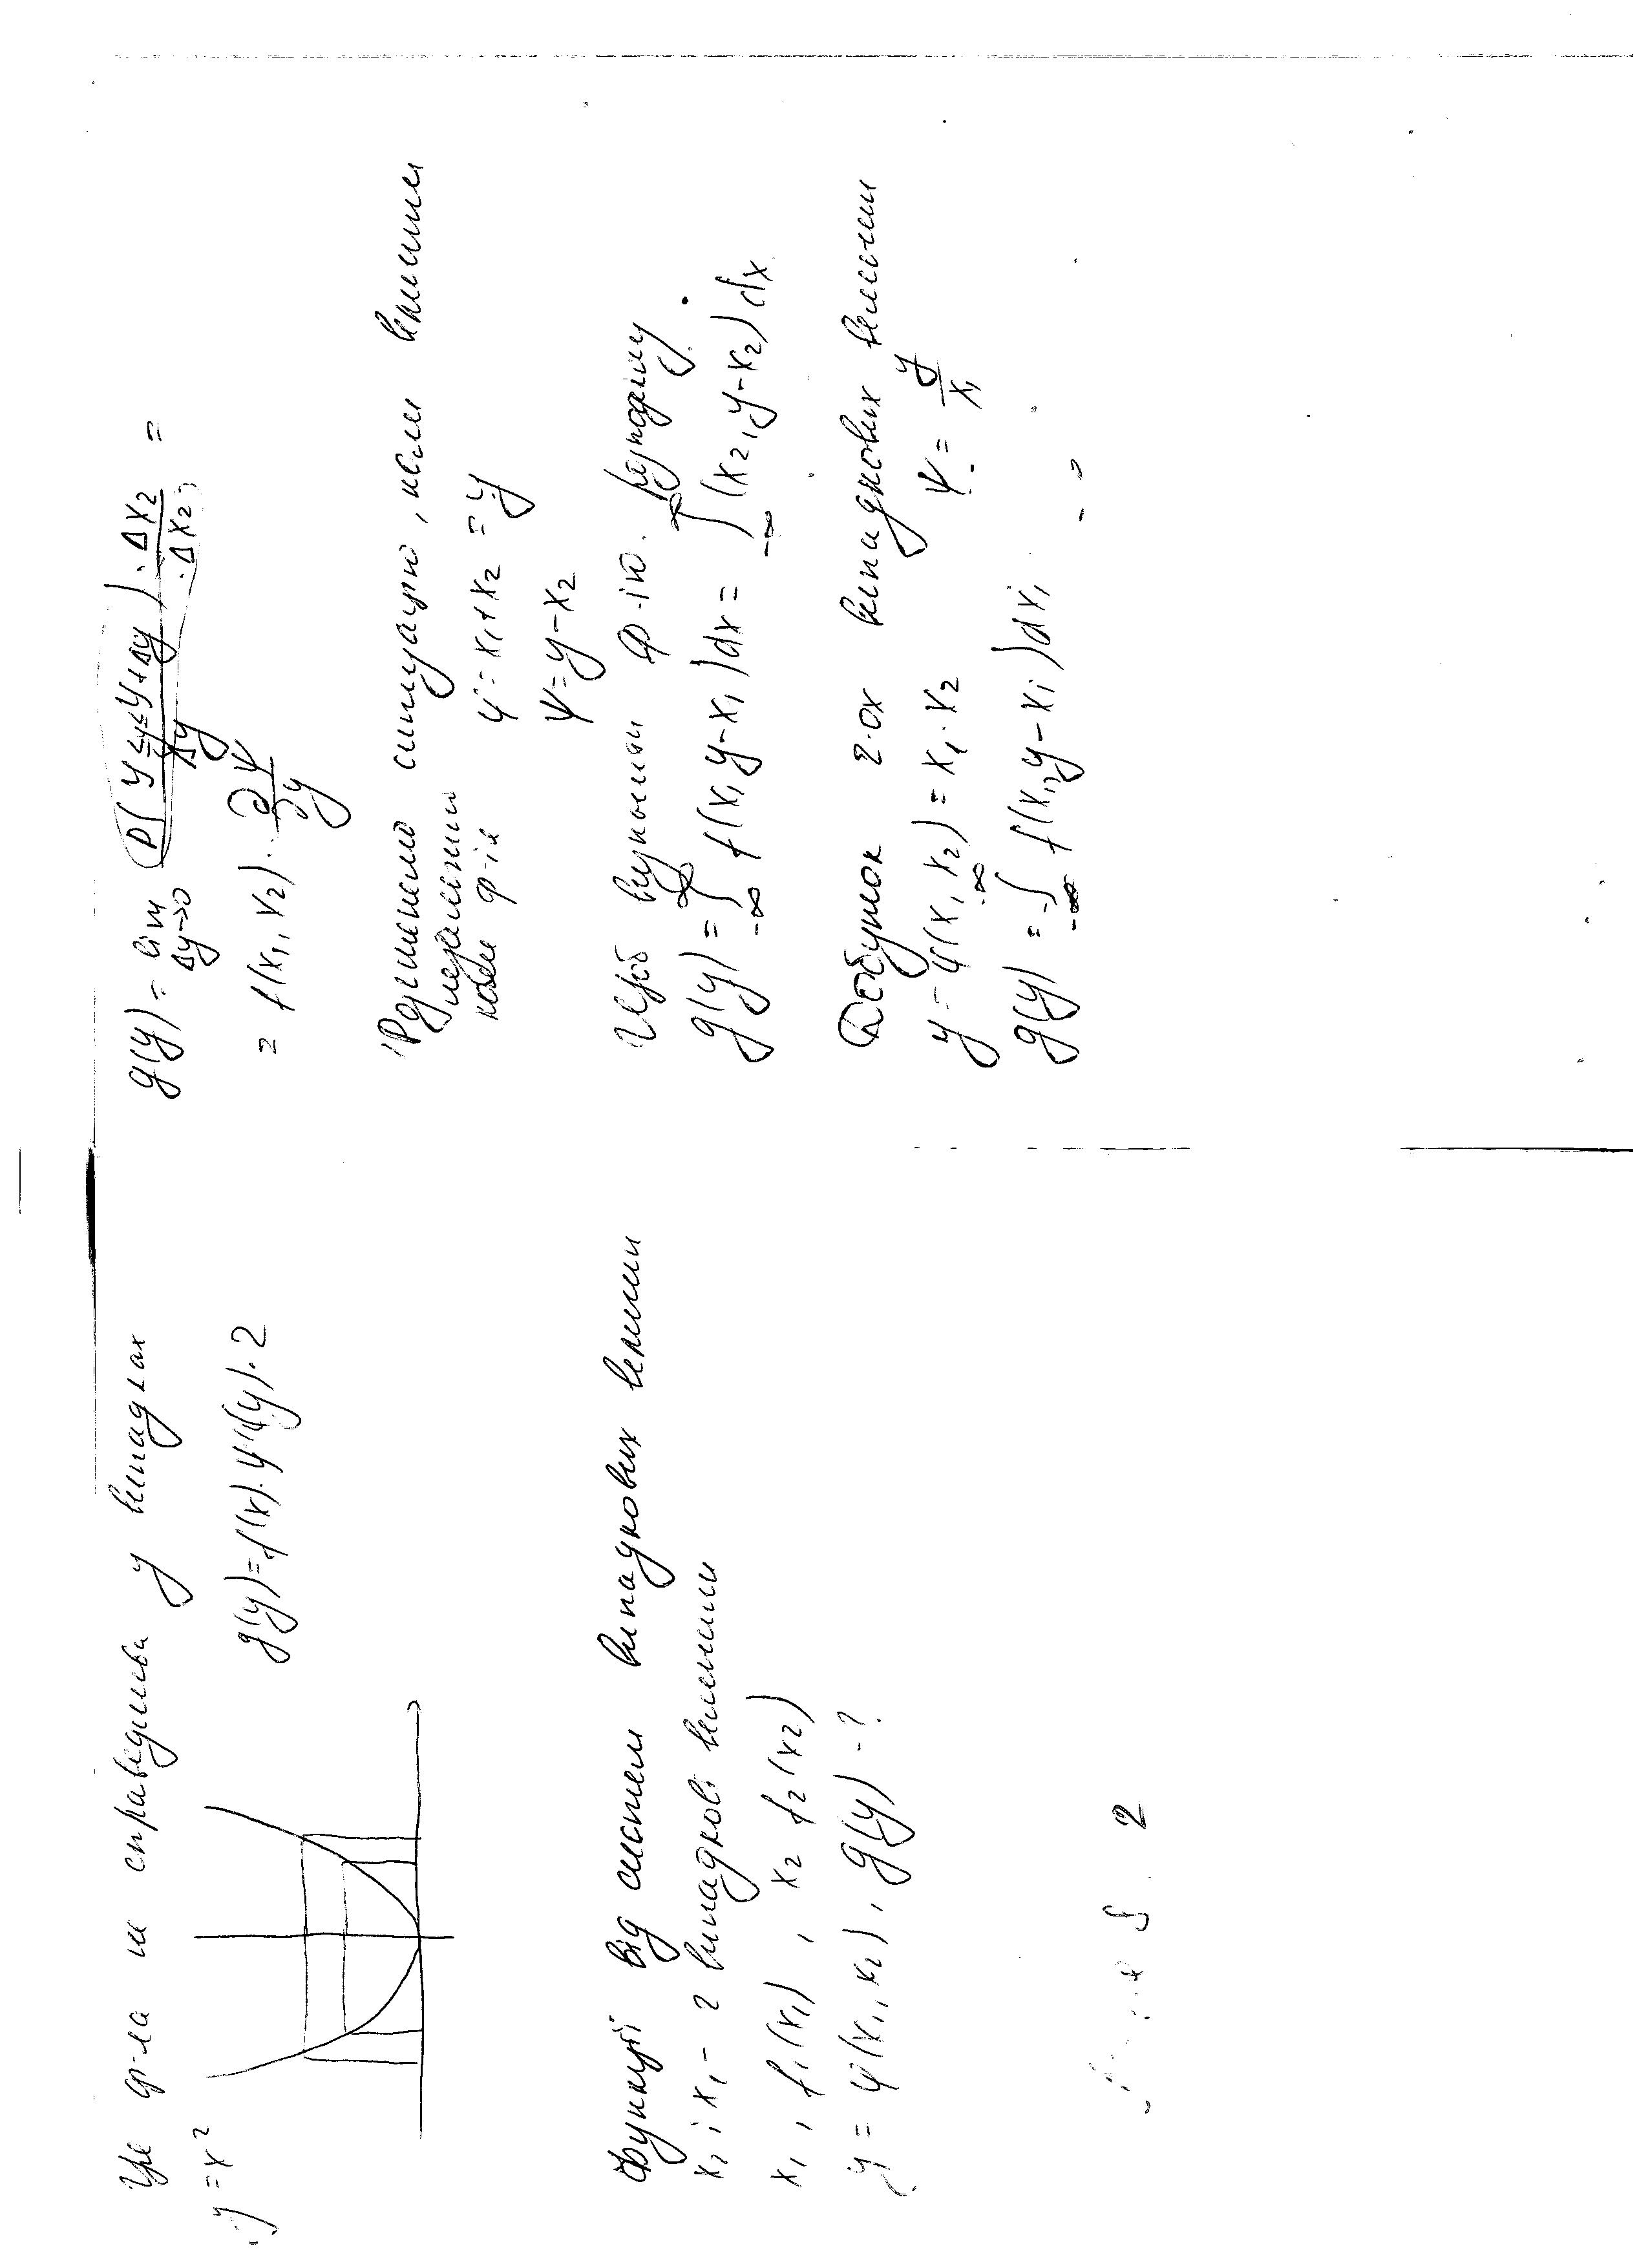 Це ф-ла не справедлива у випадках
y = x²
g(y) = f(x)·ψ'(y)·2
Функції від систем випадкових величин
x₁ і x₁ - 2 випадкові величини
x₁, f₁(x₁), x₂ f₂(x₂)
y = φ(x₁, x₂), g(y) - ?
2
g(y) = lim Δy→0 P(y ≤ y ≤ y+Δy)/Δy · Δx₂/Δx₂ =
= f(x₁, x₂) · ∂ψ/∂y
Розглянемо ситуацію, коли величини
незалежні
коли ф-ія φ = x₁ + x₂ = y
ψ = y - x₂
щоб ф-ію розподілу
g(y) = ∫_{-∞}^{∞} f(x₁ y - x₁)dx = ∫_{-∞}^{∞} (x₂, y - x₂)dx
Добуток 2-ох випадкових величин
y = φ(x₁ x₂) = x₁ · x₂ ψ = y/x₁
g(y) = ∫_{-∞}^{∞} f(x₁, y - x₁)dx₁